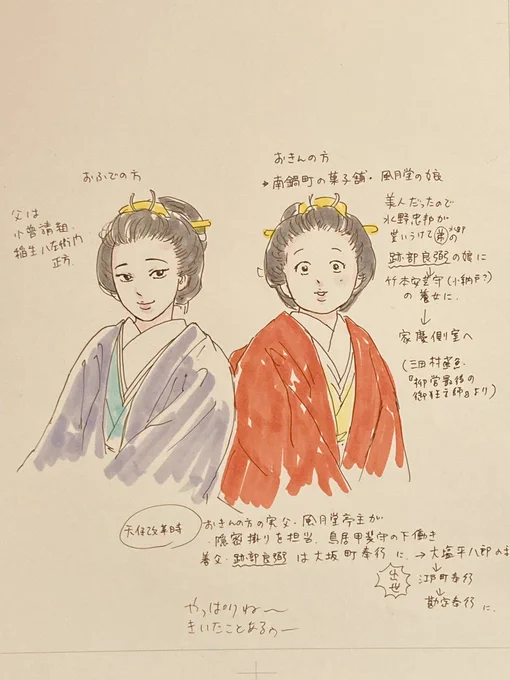 おふでの方
父は
小普請組
稲生八左衛門
正方。
おきんの方
→南鍋町の菓子舗・風月堂の娘
美人だったので
水野忠邦が
貰いうけて弟の
跡部良弼の娘に
↓
竹本安芸守(小納戸?)
の養女に。
↓
家慶側室へ
(三田村鳶魚
『柳営最後の
御狂言師』より)
天保改革時
おきんの方の実父・風月堂亭主が
隠密掛りを担当。鳥居甲斐守の下働き
養父・跡部良弼は大坂町奉行に。→大塩平八郎の
↓
出世
江戸町奉行
↓
勘定奉行に。
やっぱりね〜
きいたことあるの〜